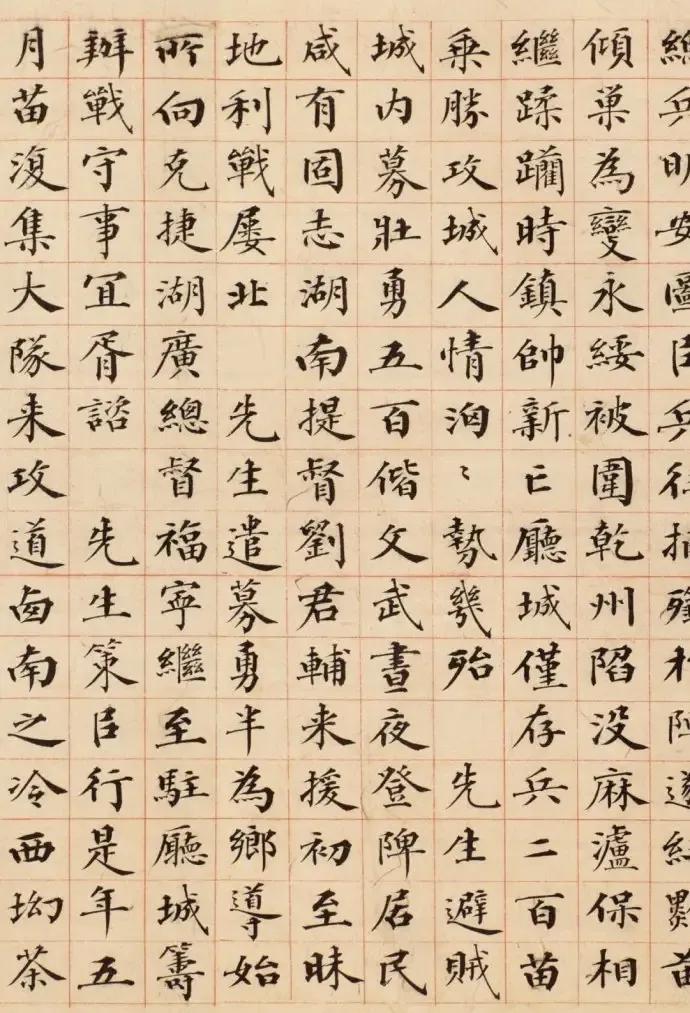 總兵明安圖臣兵徃捕殪於陣遂紅黑苗
傾巢為變永綏被圍乾州陷没麻瀘保相
繼蹂躪時鎮帥新亡廳城僅存兵二百苗
乗勝攻城人情洶〻勢幾殆先生避賊
城内募壯勇五百偕文武晝夜登陴居民
咸有固志湖南提督劉君輔来援初至昧
地利戰屡北先生遣募勇半為鄉導始
所向克捷湖廣總督福寜繼至駐廳城籌
辦戰守事冝胥諮先生策臣行是年五
月苗復集大隊来攻道凾南之冷西坳茶